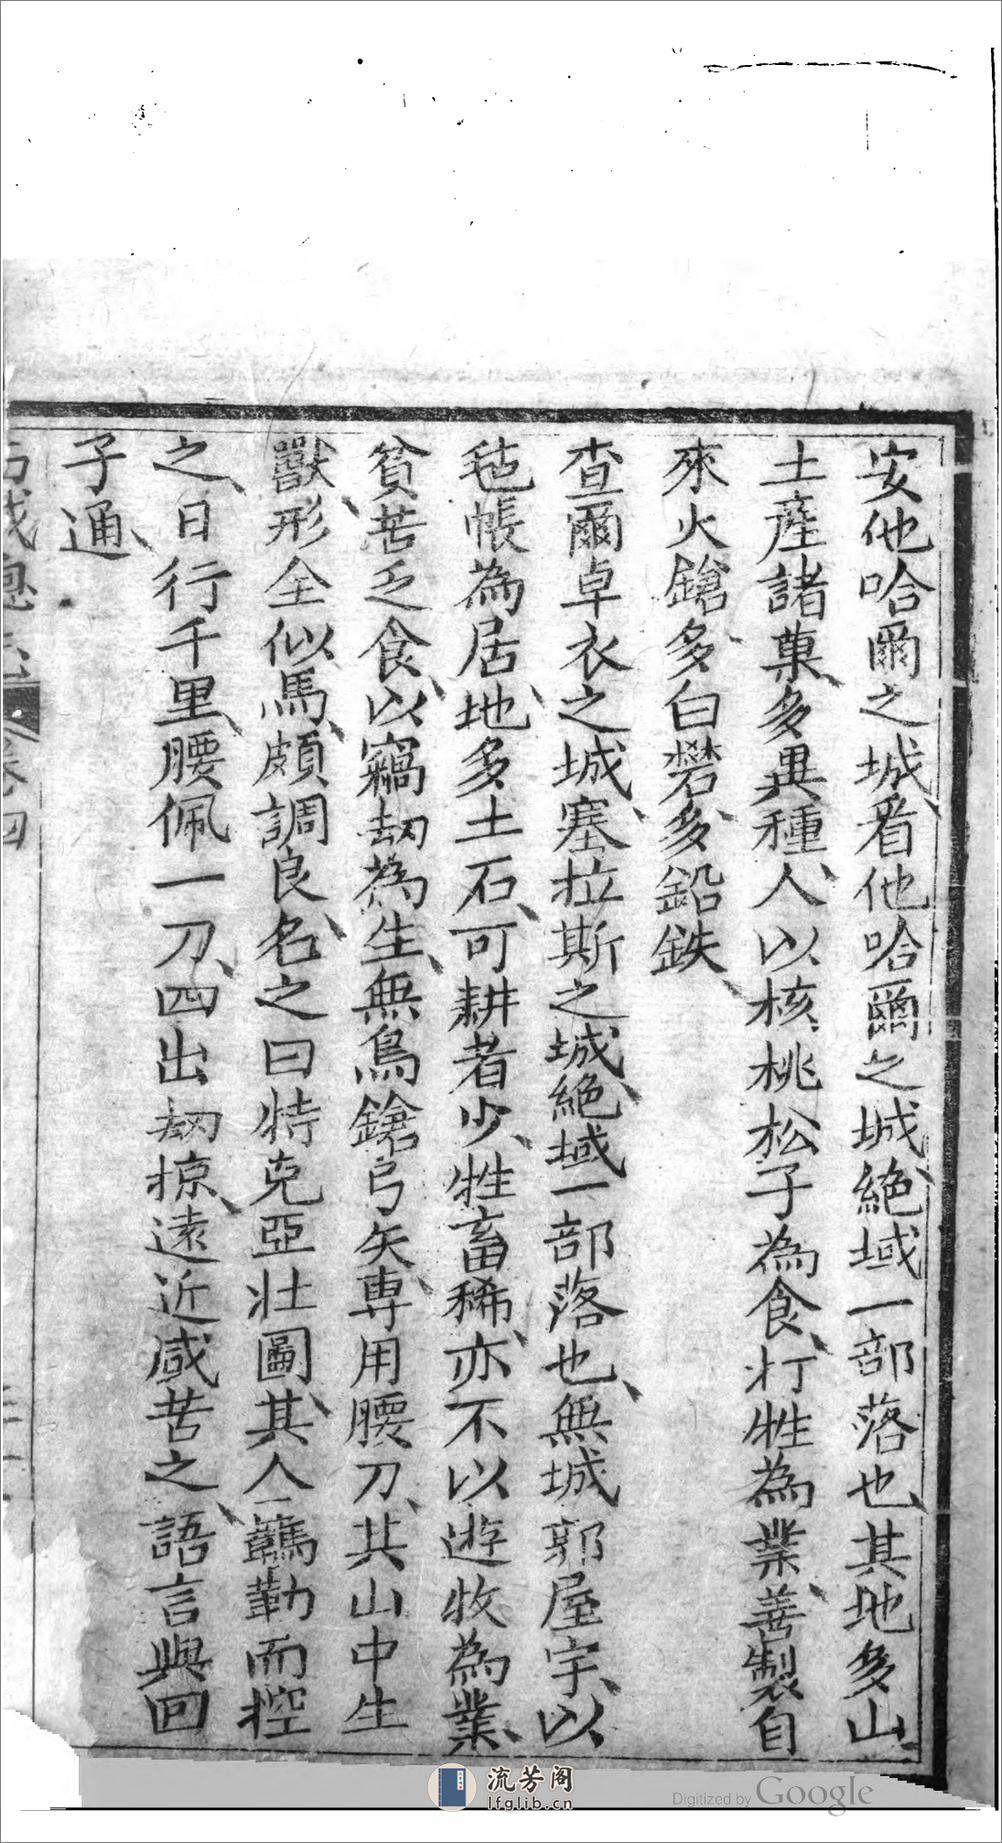 安他哈爾之城、看他哈爾之城、絶域一部落也、其地多山
土産諸菓、多異種、人以核桃松子為食、打牲為業、善製自
來火鎗、多白礬、多鉛鉄、
查爾卓衣之城、塞拉斯之城、絶域一部落也、無城郭屋宇、以
毡帳為居、地多土石、可耕者少、牲畜稀、亦不以遊牧為業、
貧苦乏食、以竊劫為生、無鳥鎗弓矢、専用腰刀、其山中生
獸、形全似馬、頗調良、名之曰特克亞壮圖、其人羈勒而控
之、日行千里、腰佩一刀、四出劫掠、遠近咸苦之、語言與回
子通、
卷四
流芳阁
lfglib.cn
Digitized by Google